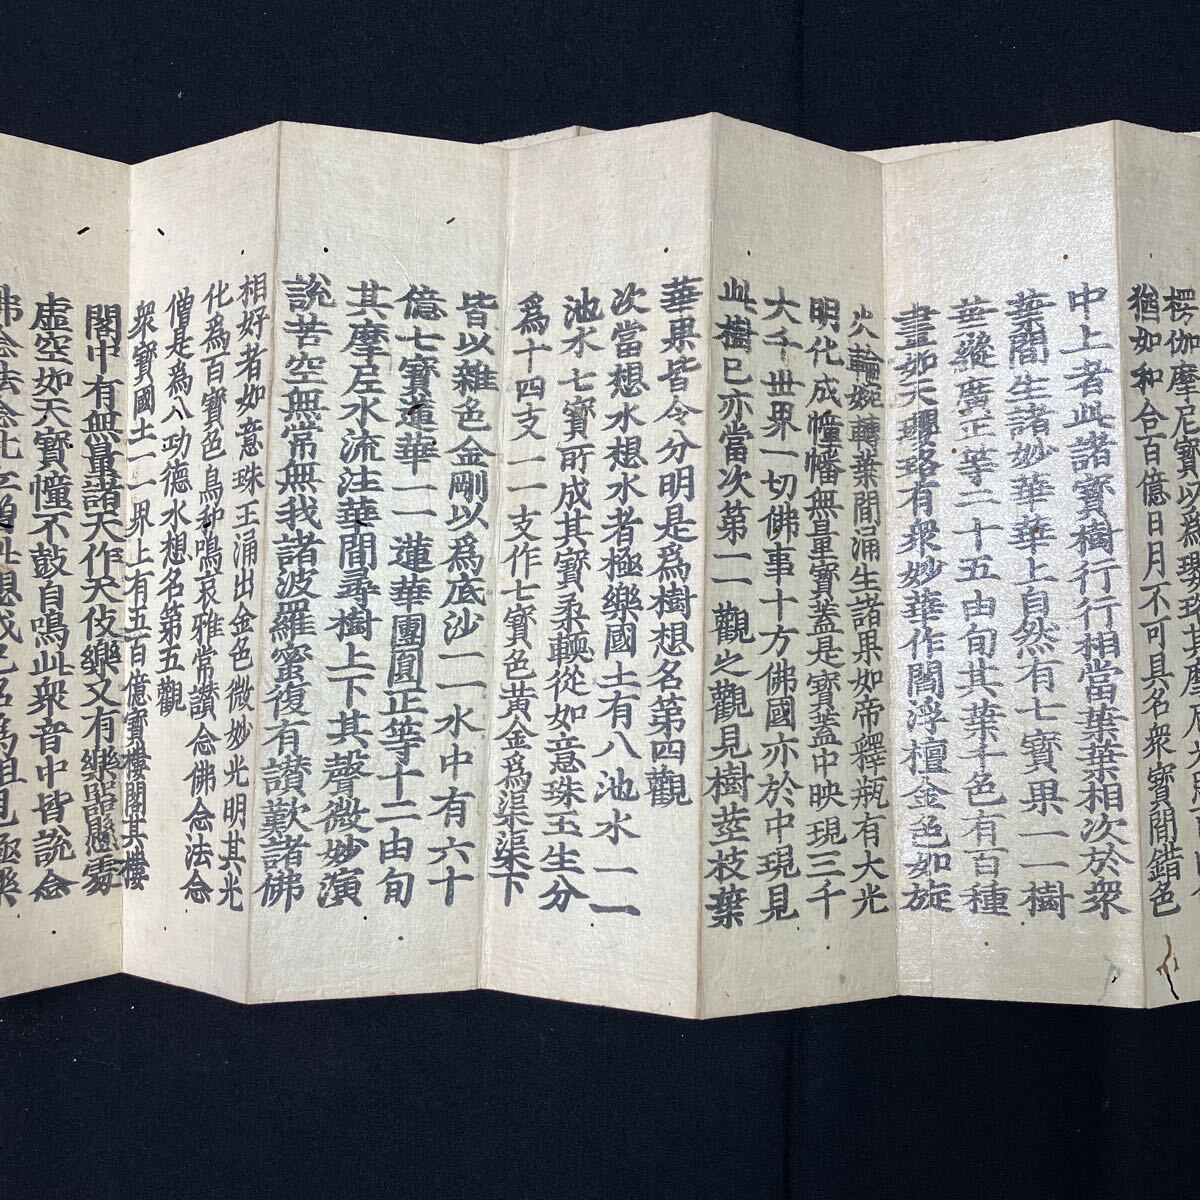 楞伽摩尼寶以爲瓔珞其摩尼光
猶如和合百億日月不可具名衆寶間錯色
中上者此諸寶樹行行相當葉葉相次於衆
葉間生諸妙華華上自然有七寶果一一樹
葉縱廣正等二十五由旬其葉千色有百種
畫如天瓔珞有衆妙華作閻浮檀金色如旋
火輪婉轉葉間涌生諸果如帝釋瓶有大光
明化成幢幡無量寶蓋是寶蓋中映現三千
大千世界一切佛事十方佛國亦於中現見
此樹已亦當次第一一觀之觀見樹莖枝葉
華果皆令分明是爲樹想名第四觀
次當想水想水者極樂國土有八池水一一
池水七寶所成其寶柔軟從如意珠王生分
爲十四支一一支作七寶色黃金爲渠渠下
皆以雜色金剛以爲底沙一一水中有六十
億七寶蓮華一一蓮華團圓正等十二由旬
其摩尼水流注華間尋樹上下其聲微妙演
說苦空無常無我諸波羅蜜復有讚歎諸佛
相好者如意珠王涌出金色微妙光明其光
化爲百寶色鳥和鳴哀雅常讚念佛念法念
僧是爲八功德水想名第五觀
衆寶國土一一界上有五百億寶樓閣其樓
閣中有無量諸天作天伎樂又有樂器懸處
虛空如天寶幢不鼓自鳴此衆音中皆說念
佛念法念比丘僧此想成已名爲粗見極樂